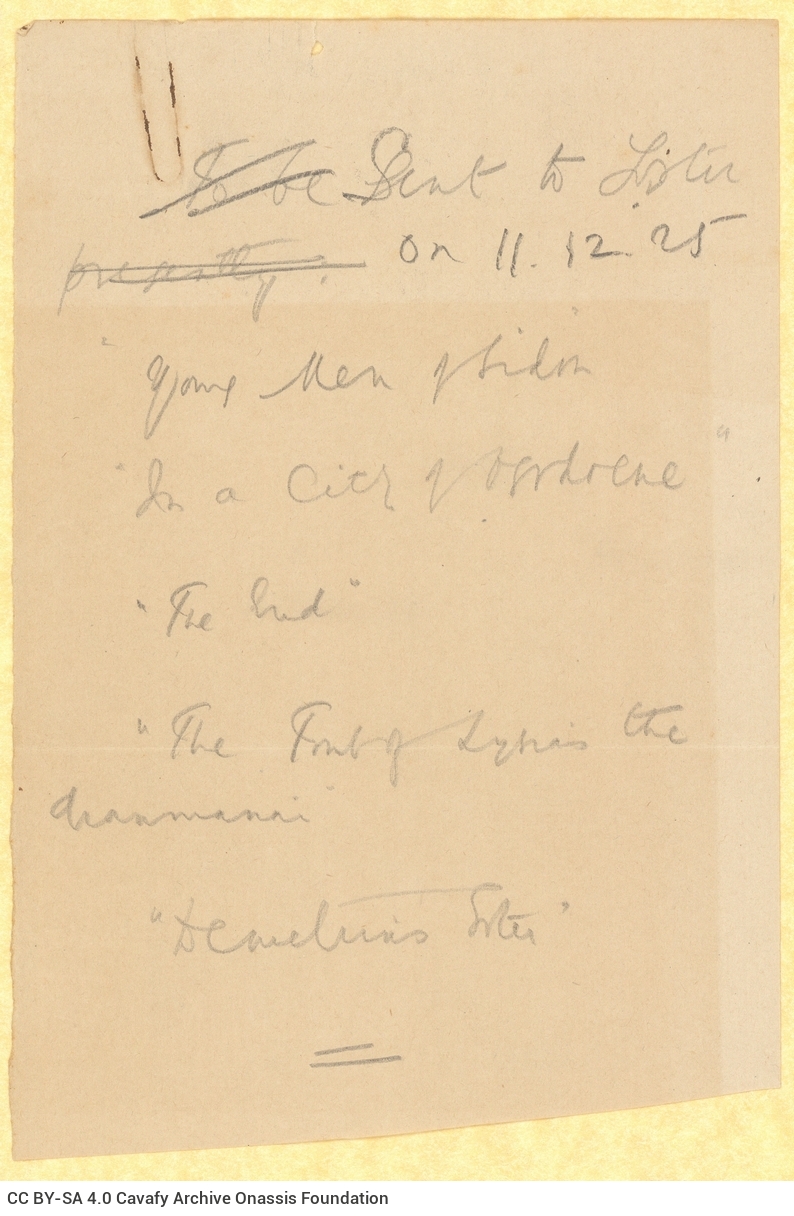 To be Sent to Lister
presently. on 11.12.25
"Young Men of Sidon"
"In a City of Osrhoene"
"The End"
"The Tomb of Lysias the
Grammarian"
"Demetrius Soter"
CC BY-SA 4.0 Cavafy Archive Onassis Foundation